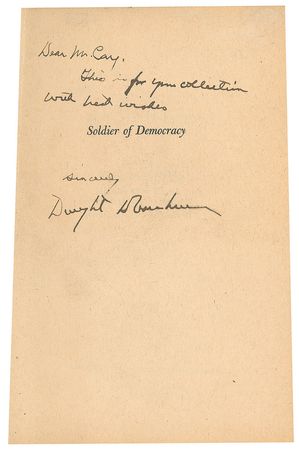 Dear Mr. Cary.
This is for your collection
with best wishes
Soldier of Democracy
sincerely
Dwight Eisenhower